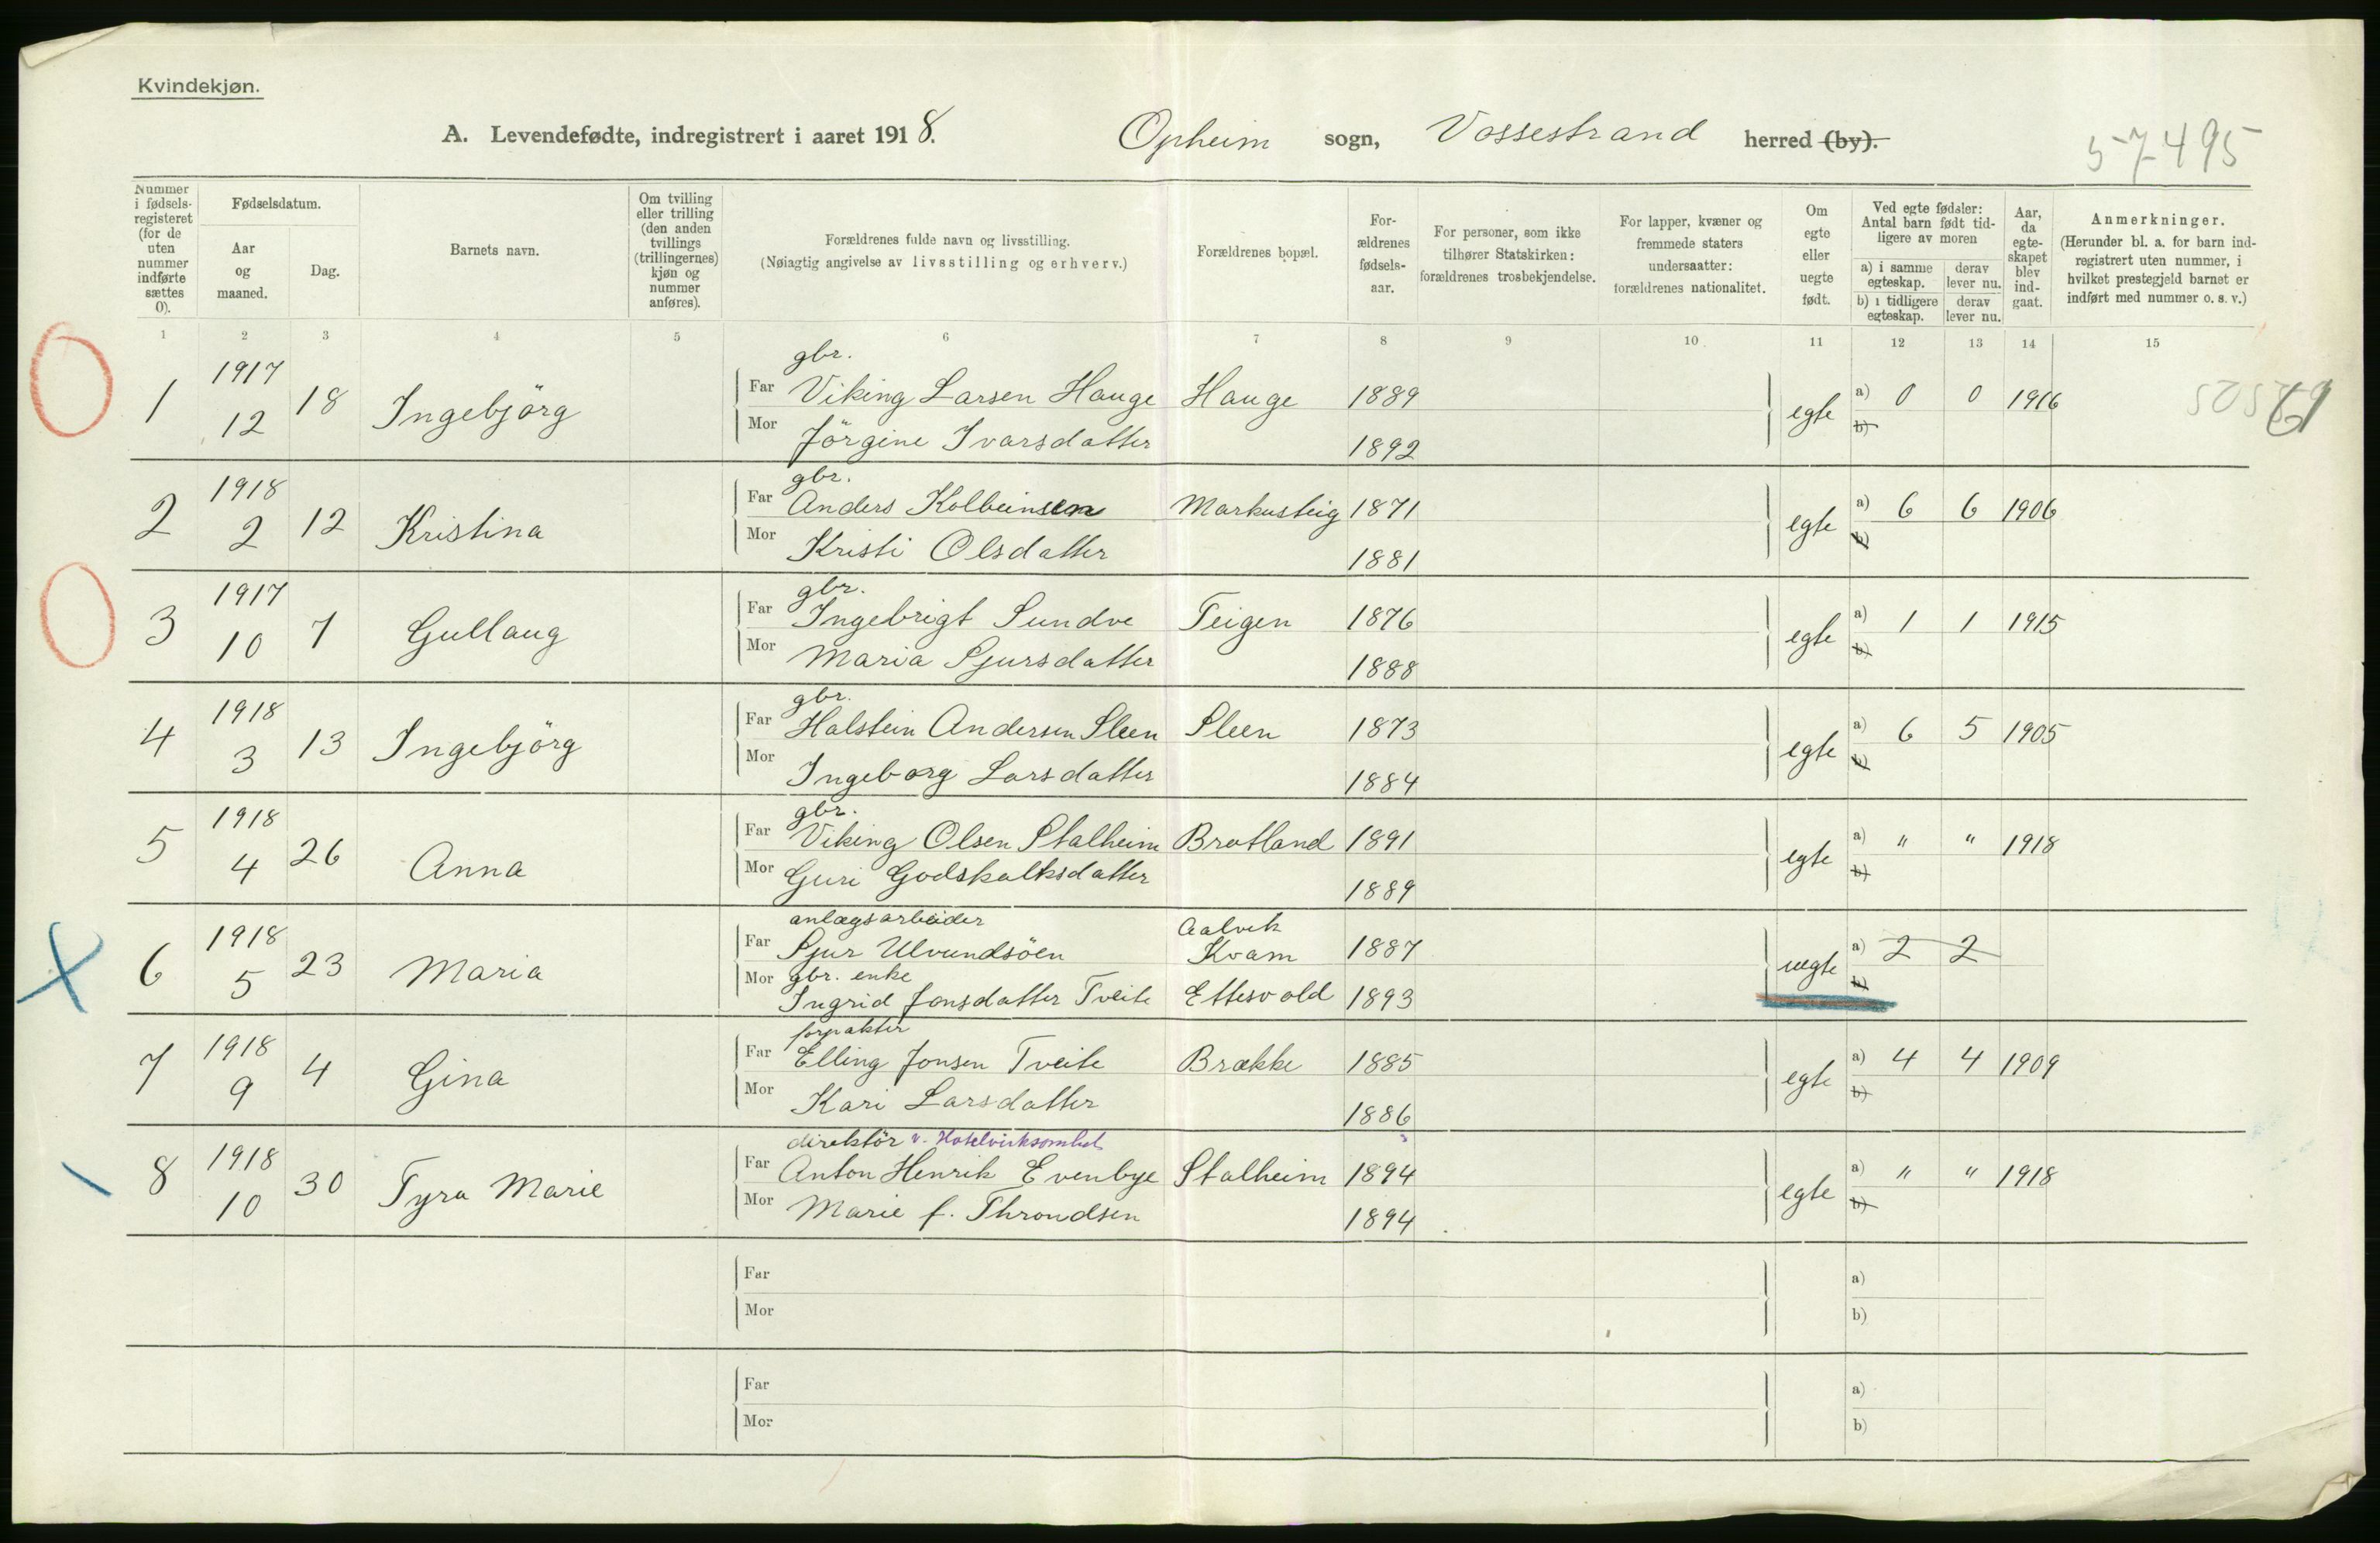 Kvindekjøn.
A. Levendefødte, indregistrert i aaret 1918. Opheim sogn, Vossestrand herred (by).
57495
Nummer i fødsels-registeret (for de uten nummer indførte sættes 0).
Fødselsdatum.
Aar og maaned.
Dag.
Barnets navn.
Om tvilling eller trilling (den anden tvillings (trillingernes) kjøn og nummer anføres).
Forældrenes fulde navn og livsstilling.
(Nøiagtig angivelse av livsstilling og erhverv.)
Forældrenes bopæl.
For-ældrenes fødsels-aar.
For personer, som ikke tilhører Statskirken: forældrenes trosbekjendelse.
For lapper, kvæner og fremmede staters undersaatter: forældrenes nationalitet.
Om egte eller uegte født.
Ved egte fødsler: Antal barn født tid-ligere av moren
a) i samme egteskap. derav lever nu.
b) i tidligere egteskap. derav lever nu.
Aar, da egte-skapet blev ind-gaat.
Anmerkninger.
(Herunder bl. a. for barn ind-registrert uten nummer, i hvilket prestegjeld barnet er indført med nummer o. s. v.)
1 2 3 4 5 6 7 8 9 10 11 12 13 14 15
gbr.
1 1917 12 18 Ingebjörg Far Viking Larsen Hauge Hauge 1889 egte a) 0 0 1916
Mor Jörgine Ivarsdatter 1892 b)
gbr.
2 1918 2 12 Kristina Far Anders Kolbeinsen Markusteig 1871 egte a) 6 6 1906
Mor Kristi Olsdatter 1881 b)
gbr.
3 1917 10 7 Gullaug Far Ingebrigt Sundve Teigen 1876 egte a) 1 1 1915
Mor Maria Sjursdatter 1888 b)
gbr.
4 1918 3 13 Ingebjörg Far Halstein Andersen Sleen Sleen 1873 egte a) 6 5 1905
Mor Ingeborg Larsdatter 1884 b)
gbr.
5 1918 4 26 Anna Far Viking Olsen Stalheim Brotland 1891 egte a) " " 1918
Mor Guri Godskalksdatter 1889 b)
anlægsarbeider Aalvik
6 1918 5 23 Maria Far Sjur Ulvundsöen Kvam 1887 uegte a) 2 2
Mor gbr. enke b)
Ingrid Jonsdatter Tveite Ettesvold 1893
forpakter
7 1918 9 4 Gina Far Elling Jonsen Tveite Brække 1885 egte a) 4 4 1909
Mor Kari Larsdatter 1886 b)
direktör v. Hotelvirksomhet
8 1918 10 30 Tyra Marie Far Anton Henrik Evenbye Stalheim 1894 egte a) " " 1918
Mor Marie f. Throndsen 1894 b)
Far a)
Mor b)
Far a)
Mor b)